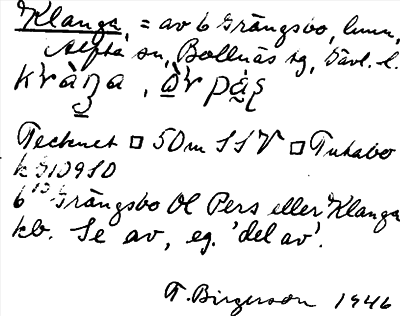 Klanga, = av 6 Grängsbo, lmm,
Alfta sn, Bollnäs tg, Gävl. l.
kràŋa, òr pás
Tecknet □ 50 m SSV □ Tutabo
kb 109SD
6 Grängsbo Ol Pers eller Klanga
kb. Se av, eg. 'del av'.
T. Birgerson 1946